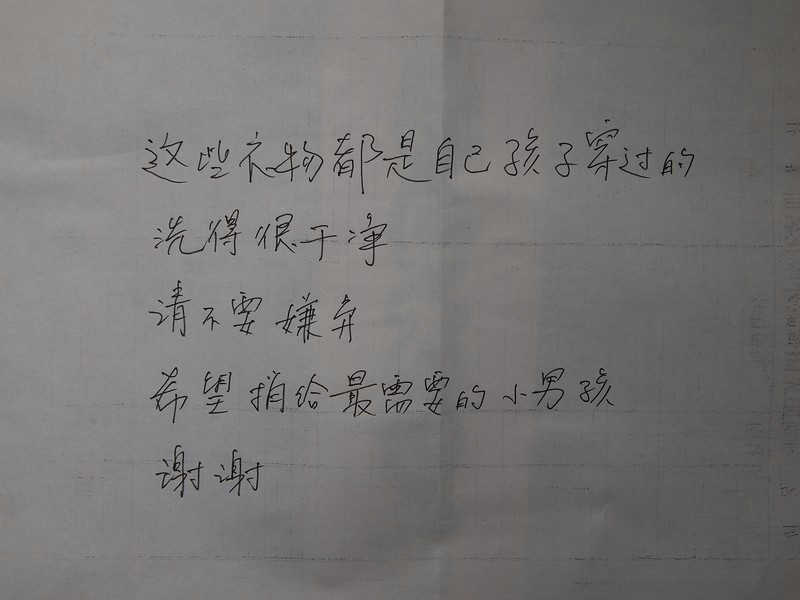 这些衣物都是自己孩子穿过的
洗得很干净
请不要嫌弃
希望捐给最需要的小男孩
谢谢